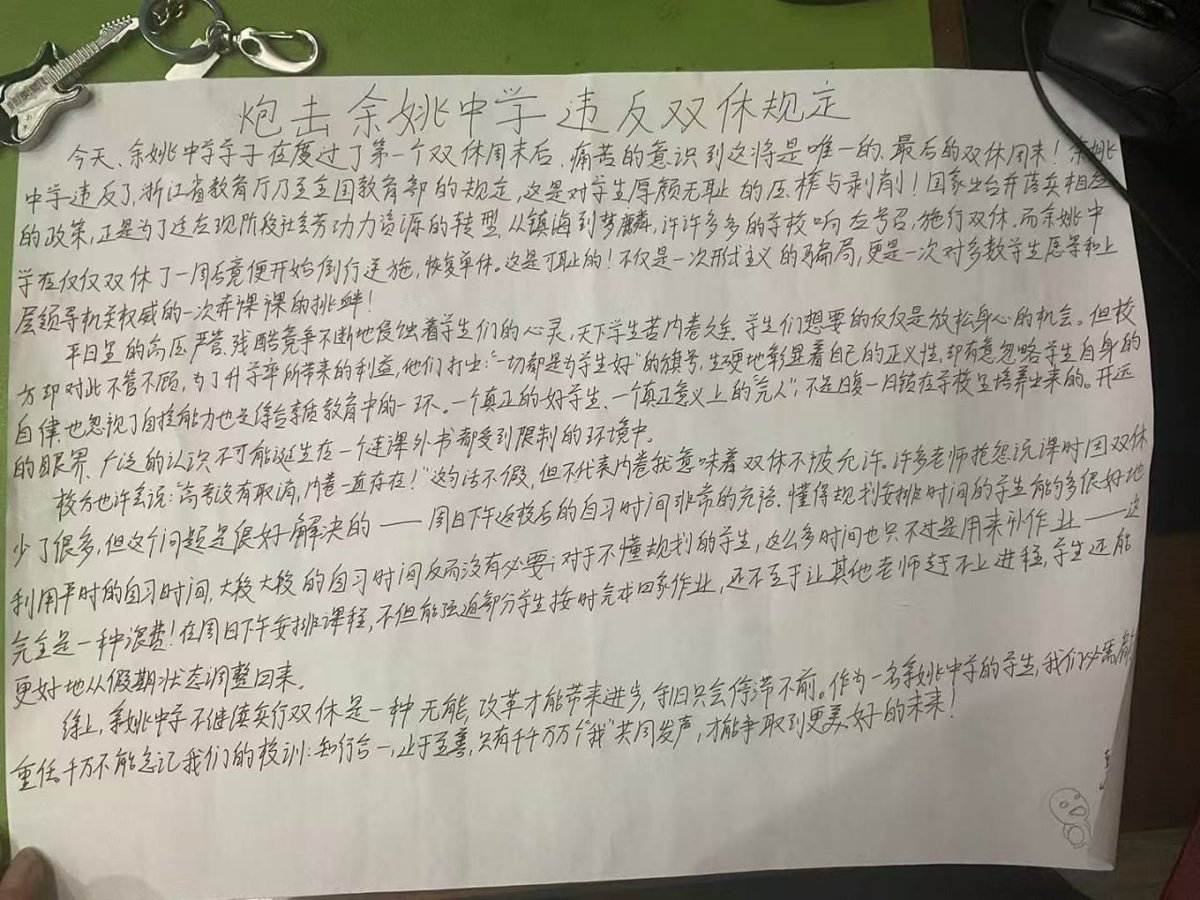 炮击余姚中学违反双休规定
今天、余姚中学学子在度过了第一个双休周末后、痛苦的意识到这将是唯一的、最后的双休周末！余姚
中学违反了浙江省教育厅乃至全国教育部的规定，这是对学生厚颜无耻的压榨与剥削！国家出台并落实相应
的政策，正是为了适应现阶段社会劳动力资源的转型。从镇海到梦麟，许许多多的学校响应号召，施行双休。而余姚中
学在仅仅双休了一周后竟便开始倒行逆施，恢复单休。这是可耻的！不仅是一次形式主义的骗局，更是一次对多数学生愿景和上
层领导机关权威的一次赤裸裸的挑衅！
平日里的高压严管、残酷竞争不断地侵蚀着学生们的心灵，天下学生苦内卷久矣。学生们想要的仅仅是放松身心的机会。但校
方却对此不管不顾，为了升学率所带来的利益，他们打出："一切都是为学生好"的旗号，生硬地彰显着自己的正义性，却有意忽略学生自身的
自律，也忽视了自控能力也是综合素质教育中的一环。一个真正的好学生、一个真正意义上的"完人"，不是日复一日锁在学校里培养出来的。开远
的眼界、广泛的认识不可能诞生在一个连课外书都受到限制的环境中。
校方也许会说："高考没有取消，内卷一直存在！"这句话不假，但不代表内卷就意味着双休不被允许。许多老师抱怨说课时因双休
少了很多，但这个问题是很好解决的——周日下午返校后的自习时间非常的充裕。懂得规划安排时间的学生能够很好地
利用平时的自习时间，大段大段的自习时间反而没有必要；对于不懂规划的学生，这么多时间也只不过是用来补作业——这
完全是一种浪费！在周日下午安排课程，不但能强迫部分学生按时完成回家作业，还不至于让其他老师赶不上进程，学生还能
更好地从假期状态调整回来。
综上，余姚中学不继续实行双休是一种无能，改革才能带来进步，守旧只会停滞不前。作为一名余姚中学的学生，我们必需肩
重任，千万不能忘记我们的校训：知行合一，止于至善，只有千千万万个"我"共同发声，才能争取到更美好的未来！